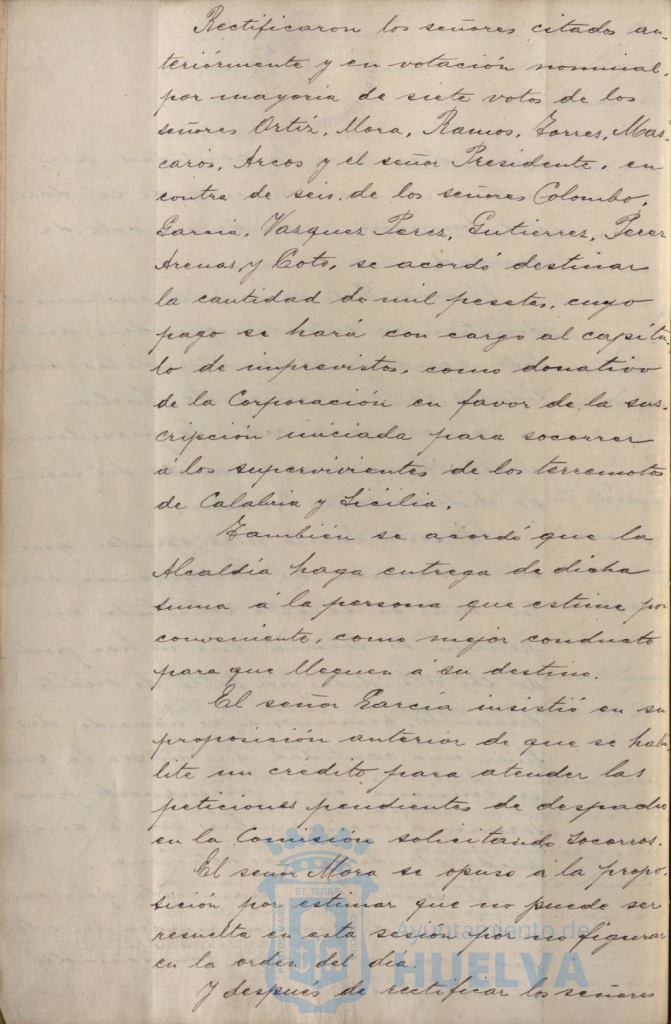 Rectificaron los señores citados an-
teriórmente y en votación nominal,
por mayoria de siete votos de los
señores Ortíz, Mora, Ramos, Torres, Mas-
carós, Arcos y el señor Presidente, en
contra de seis, de los señores Colombo,
Garcia, Vazquez Perez, Gutierrez, Perez
Arenas y Coto, se acordó destinar
la cantidad de mil pesetas, cuyo
pago se hará con cargo al capítu-
lo de imprevistos, como donativo
de la Corporación en favor de la sus-
cripción iniciada para socorrer
á los supervivientes de los terremotos
de Calabria y Sicilia.
También se acordó que la
Alcaldía haga entrega de dicha
suma á la persona que estime por
conveniente, como mejor conducto
para que lleguen á su destino.
El señor García insistió en su
proposición anterior de que se habi-
lite un crédito para atender las
peticiones pendientes de despacho
en la Comisión solicitando socorros.
El señor Mora se opuso á la propo-
sición por estimar que no puede ser
resuelta en esta sesión por no figurar
en la orden del dia.
Y después de rectificar los señores
Ayuntamiento de
HUELVA